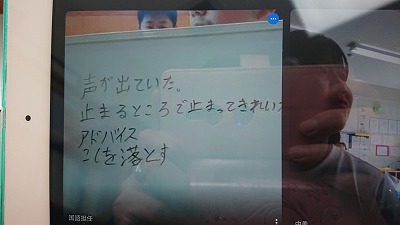 声が出ていた。
止まるところで止まってきれいだ
アドバイス
こしを落とす
国語担任